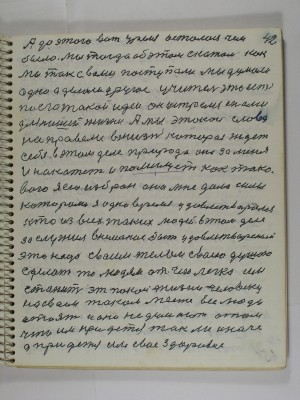 42
А до этого вот время осталось чем
было. Мы тогда об этом сказали как
мы так с вами поступали мы думали
одно а делали другое учитель это есть
после такой идеи он
для нашей жизни А мы этой слова
направили вниз которая ждет
себя в этом деле природа она за меня
и накажет и помилует как тако-
вого я ею избран она мне дала силы
которыми я одно время удовлетворялся
кто из всех таких людей в этом деле
заслужил внимание быть удовлетворенной
это надо своим телом своею душою
сделать то людям от чего легко им
станет эт такой жизни человеку
на своем таком месте все люди
стоят и они не думают о том
что им придется так ли иначе
а придется им свое здоровие